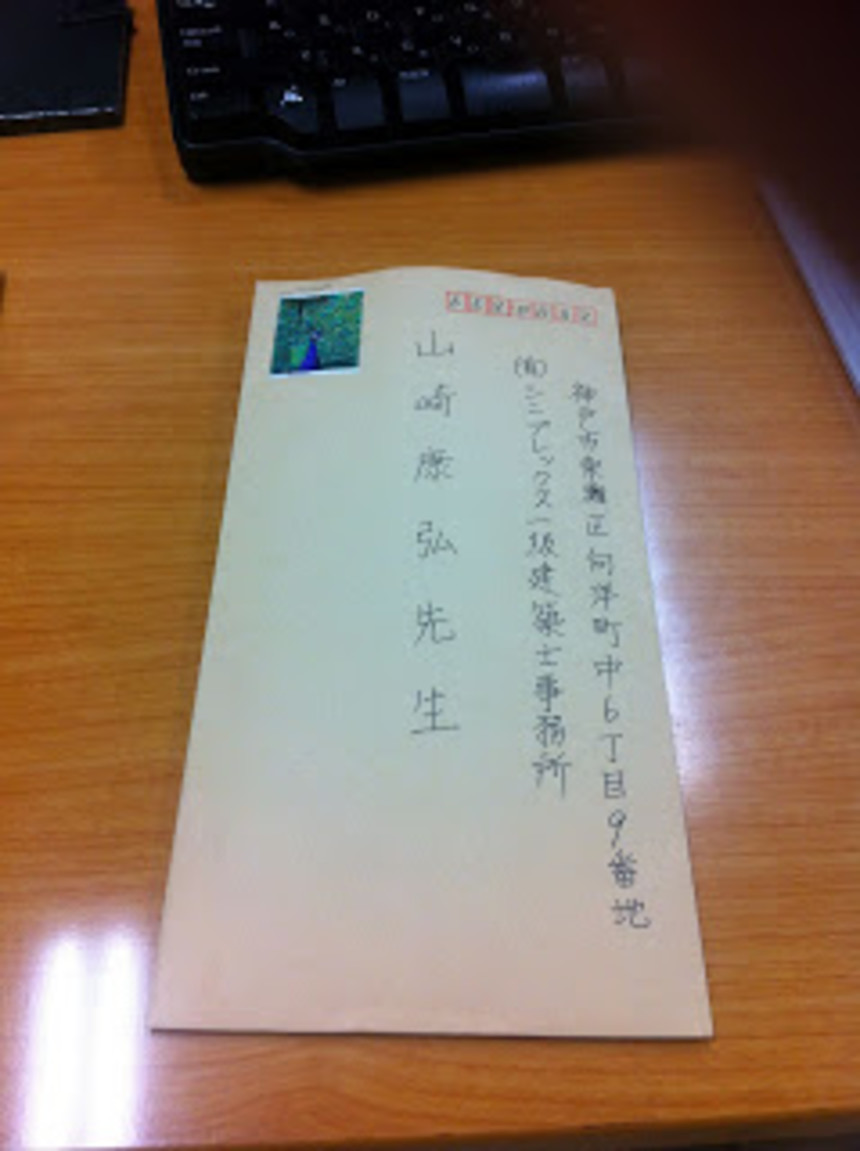 神戸市東灘区向洋町中6丁目9番地
(有)シニアレックス一級建築士事務所
山崎康弘先生